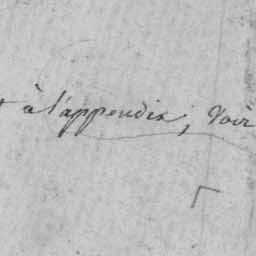 à l'appendix, Voir